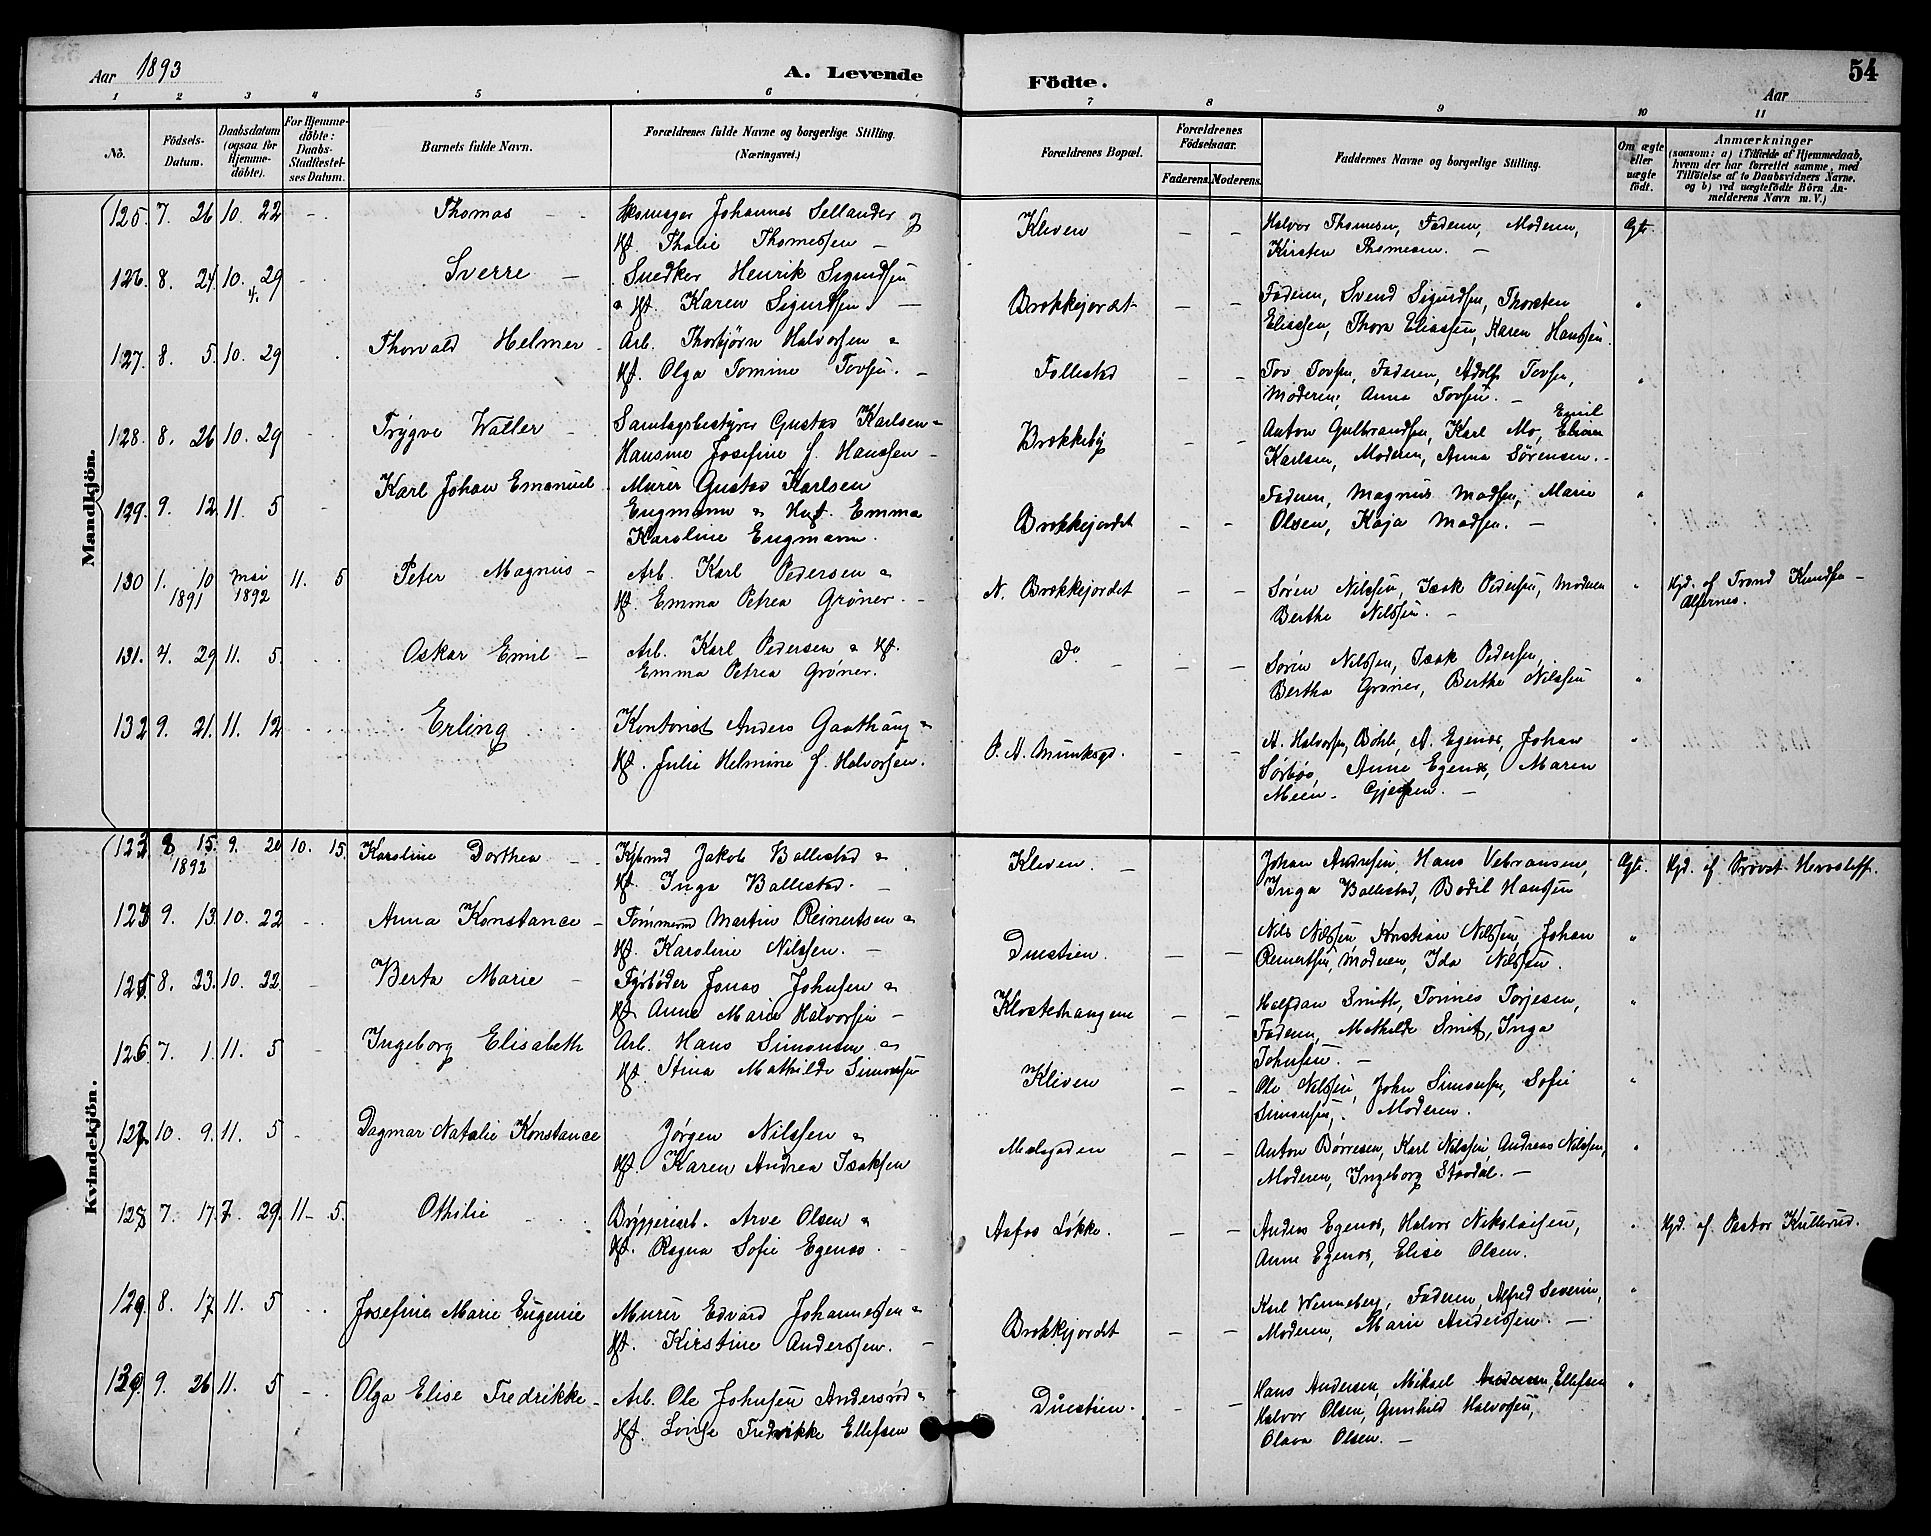 Aar 1893
A. Levende Födte.
54
Aar
1 2 3 4 5 6 7 8 9 10 11
No.
Födsels-Datum.
Daabsdatum (ogsaa for Hjemme-döbte).
For Hjemme-döbte: Daabs-Stadfæstel-ses Datum.
Barnets fulde Navn.
Forældrenes fulde Navne og borgerlige Stilling.
(Næringsvei.)
Forældrenes Bopæl.
Forældrenes Födselsaar.
Faderens. Moderens.
Faddernes Navne og borgerlige Stilling.
Om ægte eller uægte födt.
Anmærkninger
(saasom: a) i Tilfælde af Hjemmedaab, hvem der har forrettet samme, med Tilföielse af to Daabsvidners Navne. og b) ved uægtefödte Börn An-melderens Navn m. V.)
Mandkjön.
125. 7. 26 10. 22 - Thomas - Skomager Johannes Sellander og - Kleven - - Halvor Thomesen, Faderen, Moderen, Ægte.
Hst. Thalie Thomessen - Kirsten Thomesen. -
126. 8. 24. 10. 29 - Sverre - Snedker Henrik Sigurdsen
4. " Hst. Karen Sigurdsen - Brekkejordet - - Faderen, Svend Sigurdsen, Thorsten "
Eliassen, Thora Eliassen, Karen Hanssen.
127. 8. 5. 10. 29 Thorvald Helmer - Arb. Thorbjørn Halvorsen "
Hst. Olga Tomine Tovsen. - Follestad - - Tov Tovsen, Faderen, Adolf Tovsen, "
Moderen, Anna Tovsen. -
128. 8. 26 10. 29 - Trygve Walter - Samlagsbestyrer Gustav Karlsen "
Hansine Josefine f. Hanssen - Brekkeby - - Anton Gulbrandsen, Karl Mo, Emil
Karlsen, Moderen, Anna Sørensen. -
129. 9. 12 11. 5 - Karl Johan Emanuel - Murer Gustav Karlsen
Engmann " Hust. Emma
Karoline Engmann. Brekkejordet - - Faderen, Magnus Madsen, Marie "
Olsen, Kaja Madsen. -
130 1. 10 1891 Mai 1892 11. 5 Peter Magnus - Arb. Karl Pedersen "
Hst. Emma Petrea Grøner. - N. Brekkejordet - - Søren Nilssen, Isak Pedersen, Moderen " Hjd. af Trond Knudsen -
Berthe Nilssen. - Alfernes.
131. 4. 29 11. 5. Oskar Emil - Arb. Karl Pedersen " Hst.
Emma Petrea Grøner. do - - - Søren Nilssen, Isak Pedersen,
Bertha Grøner, Berthe Nilssen "
132 9. 21. 11. 12 Erling Kontorist Anders Gaathaug "
Hst. Julie Helmine f. Halvorsen. P. A. Munksgd. - - A. Halvorsen, Bøhle, A. Egenæs, Johan "
Sørbøe, Anne Egenæs, Maren
Meen - Gjersen. -
Kvindekjön.
123 8 15. 1892 9. 20 10. 15. Karoline Dorthea - Kjbmd Jakob Ballestad "
Hst. Inga Ballestad. - Kleven. - Johan Andresen, Hans Vebransen, Ægte. Hjd. af Provst Hervsleff.
Inga Ballestad, Bodil Hanssen
123 9. 13. 10. 22 - Anna Konstance - Tømmermd Martin Reinertsen "
Hst. Karoline Nilssen. - Duestien. - - Nils Nilssen, Kristian Nilssen, Johan "
Reinertsen, Moderen, Ida Nilssen.
125. 8. 23. 10. 22. - Berta Marie - Fyrbøder Jonas Johnsen "
Hst. Anne Marie Halvorsen - Klosterhaugene - - Halfdan Smith, Tomines Torjesen, "
Faderen, Mathilde Smit, Inga
Johnsen. -
126 7. 1. 11. 5 - Ingeborg Elisabeth Arb. Hans Simonsen "
Hst. Stina Mathilde Simonsen Kleven - - Ole Nilssen, John Simonsen, Sofie "
Simonsen, Moderen.
127. 10. 9. 11. 5 - Dagmar Natalie Konstance Jørgen Nilssen "
Hst. Karen Andrea Isaksen Melsgaden - - Anton Børresen, Karl Nilssen, Andreas Nilssen, "
Moderen, Ingeborg Staadal. -
128 7. 17. 7. 29. 11 - 5. Othilie - Bryggeriarb. Arve Olsen "
Hst. Ragna Sofie Egenæs. - Aafos Løkke. - - Anders Egenæs, Halvor Nikolaisen, " Hjd. af Pastor Kullerud.
Anne Egenæs, Elise Olsen.
129. 8. 17 11. 5 Josefine Marie Eugenie Murer Edvard Johannessen "
Hst. Kirstine Anderssen. - Brekkejordet - - Karl Wenneberg, Faderen, Alfred Severin, "
Moderen, Marie Anderssen. -
129. 9. 26 11. 5 - Olga Elise Fredrikke - Arb. Ole Johnsen Andersrød "
Hst. Lovise Fredrikke Ellefsen Duestien. - - Hans Andersen, Mikael Ellefsen "
Halvor Olsen, Gunhild Halvorsen,
Olava Olsen. -